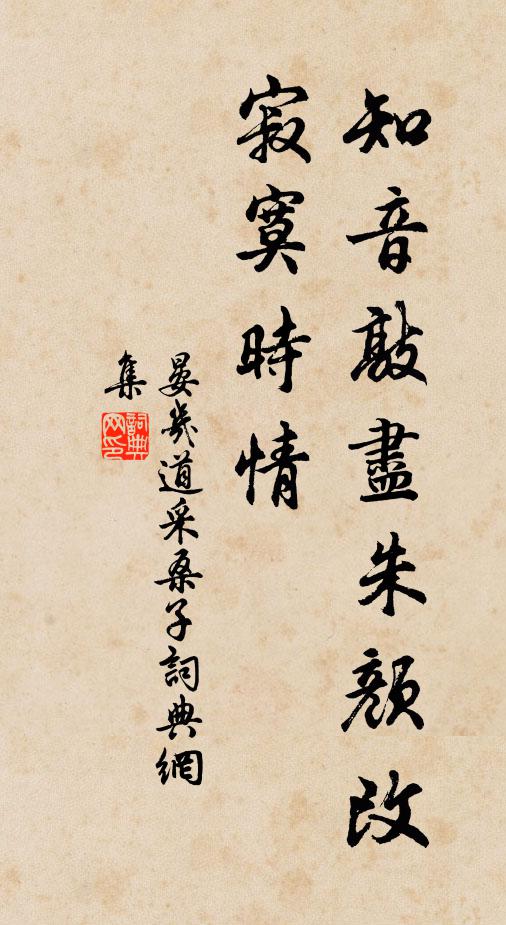 知音敲盡朱顏改
寂寞時情
晏幾道采桑子詞典網
集
詞典網印